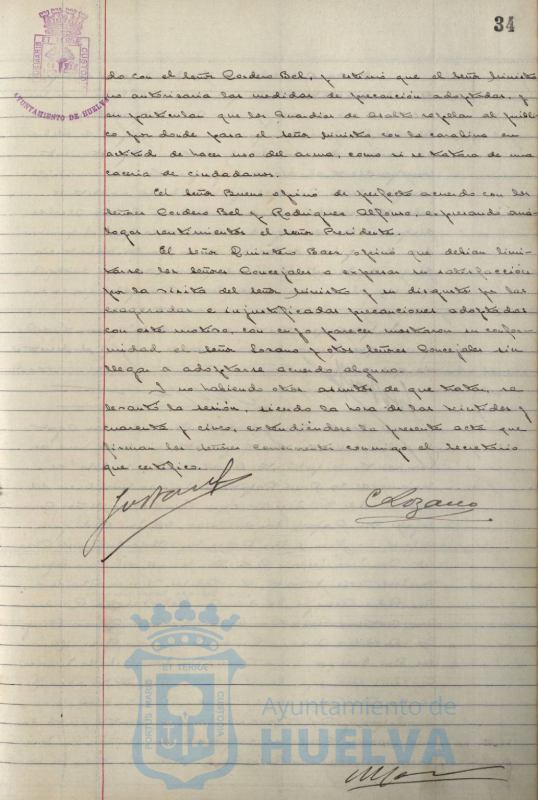 34
PORTUS MARIS ET TERRAE CUSTODIA
AYUNTAMIENTO DE HUELVA
do con el señor Cordero Bel, y estimó que el señor Ministro
no autorizaria las medidas de precaución adoptadas, y
en particular que los Guardias de Asalto rodelan al públi-
co por donde pasa el señor Ministro con la carabina en
actitud de hacer uso del arma, como si se tratara de una
caceria de ciudadanos.
El señor Bueno opinó de perfecto acuerdo con los
señores Cordero Bel y Rodriguez Alfonso, expresando aná-
logos sentimientos el señor Presidente.
El señor Quintero Baez opinó que debian limi-
tarse los señores Concejales a expresar su satisfacción
por la visita del señor Ministro y su disgusto por las
exageradas e injustificadas precauciones adoptadas
con este motivo, con cuyo parecer mostraron su confor-
midad el señor Lozano y otros señores Concejales sin
llegar a adoptarse acuerdo alguno.
Y no habiendo otros asuntos de que tratar, se
levantó la sesión, siendo la hora de las veintidos y
cuarenta y cinco, extendiéndose la presente acta que
firman los señores concurrentes conmigo el Secretario
que certifico.
C Lozano
PORTUS MARIS ET TERRAE CUSTODIA
Ayuntamiento de
HUELVA